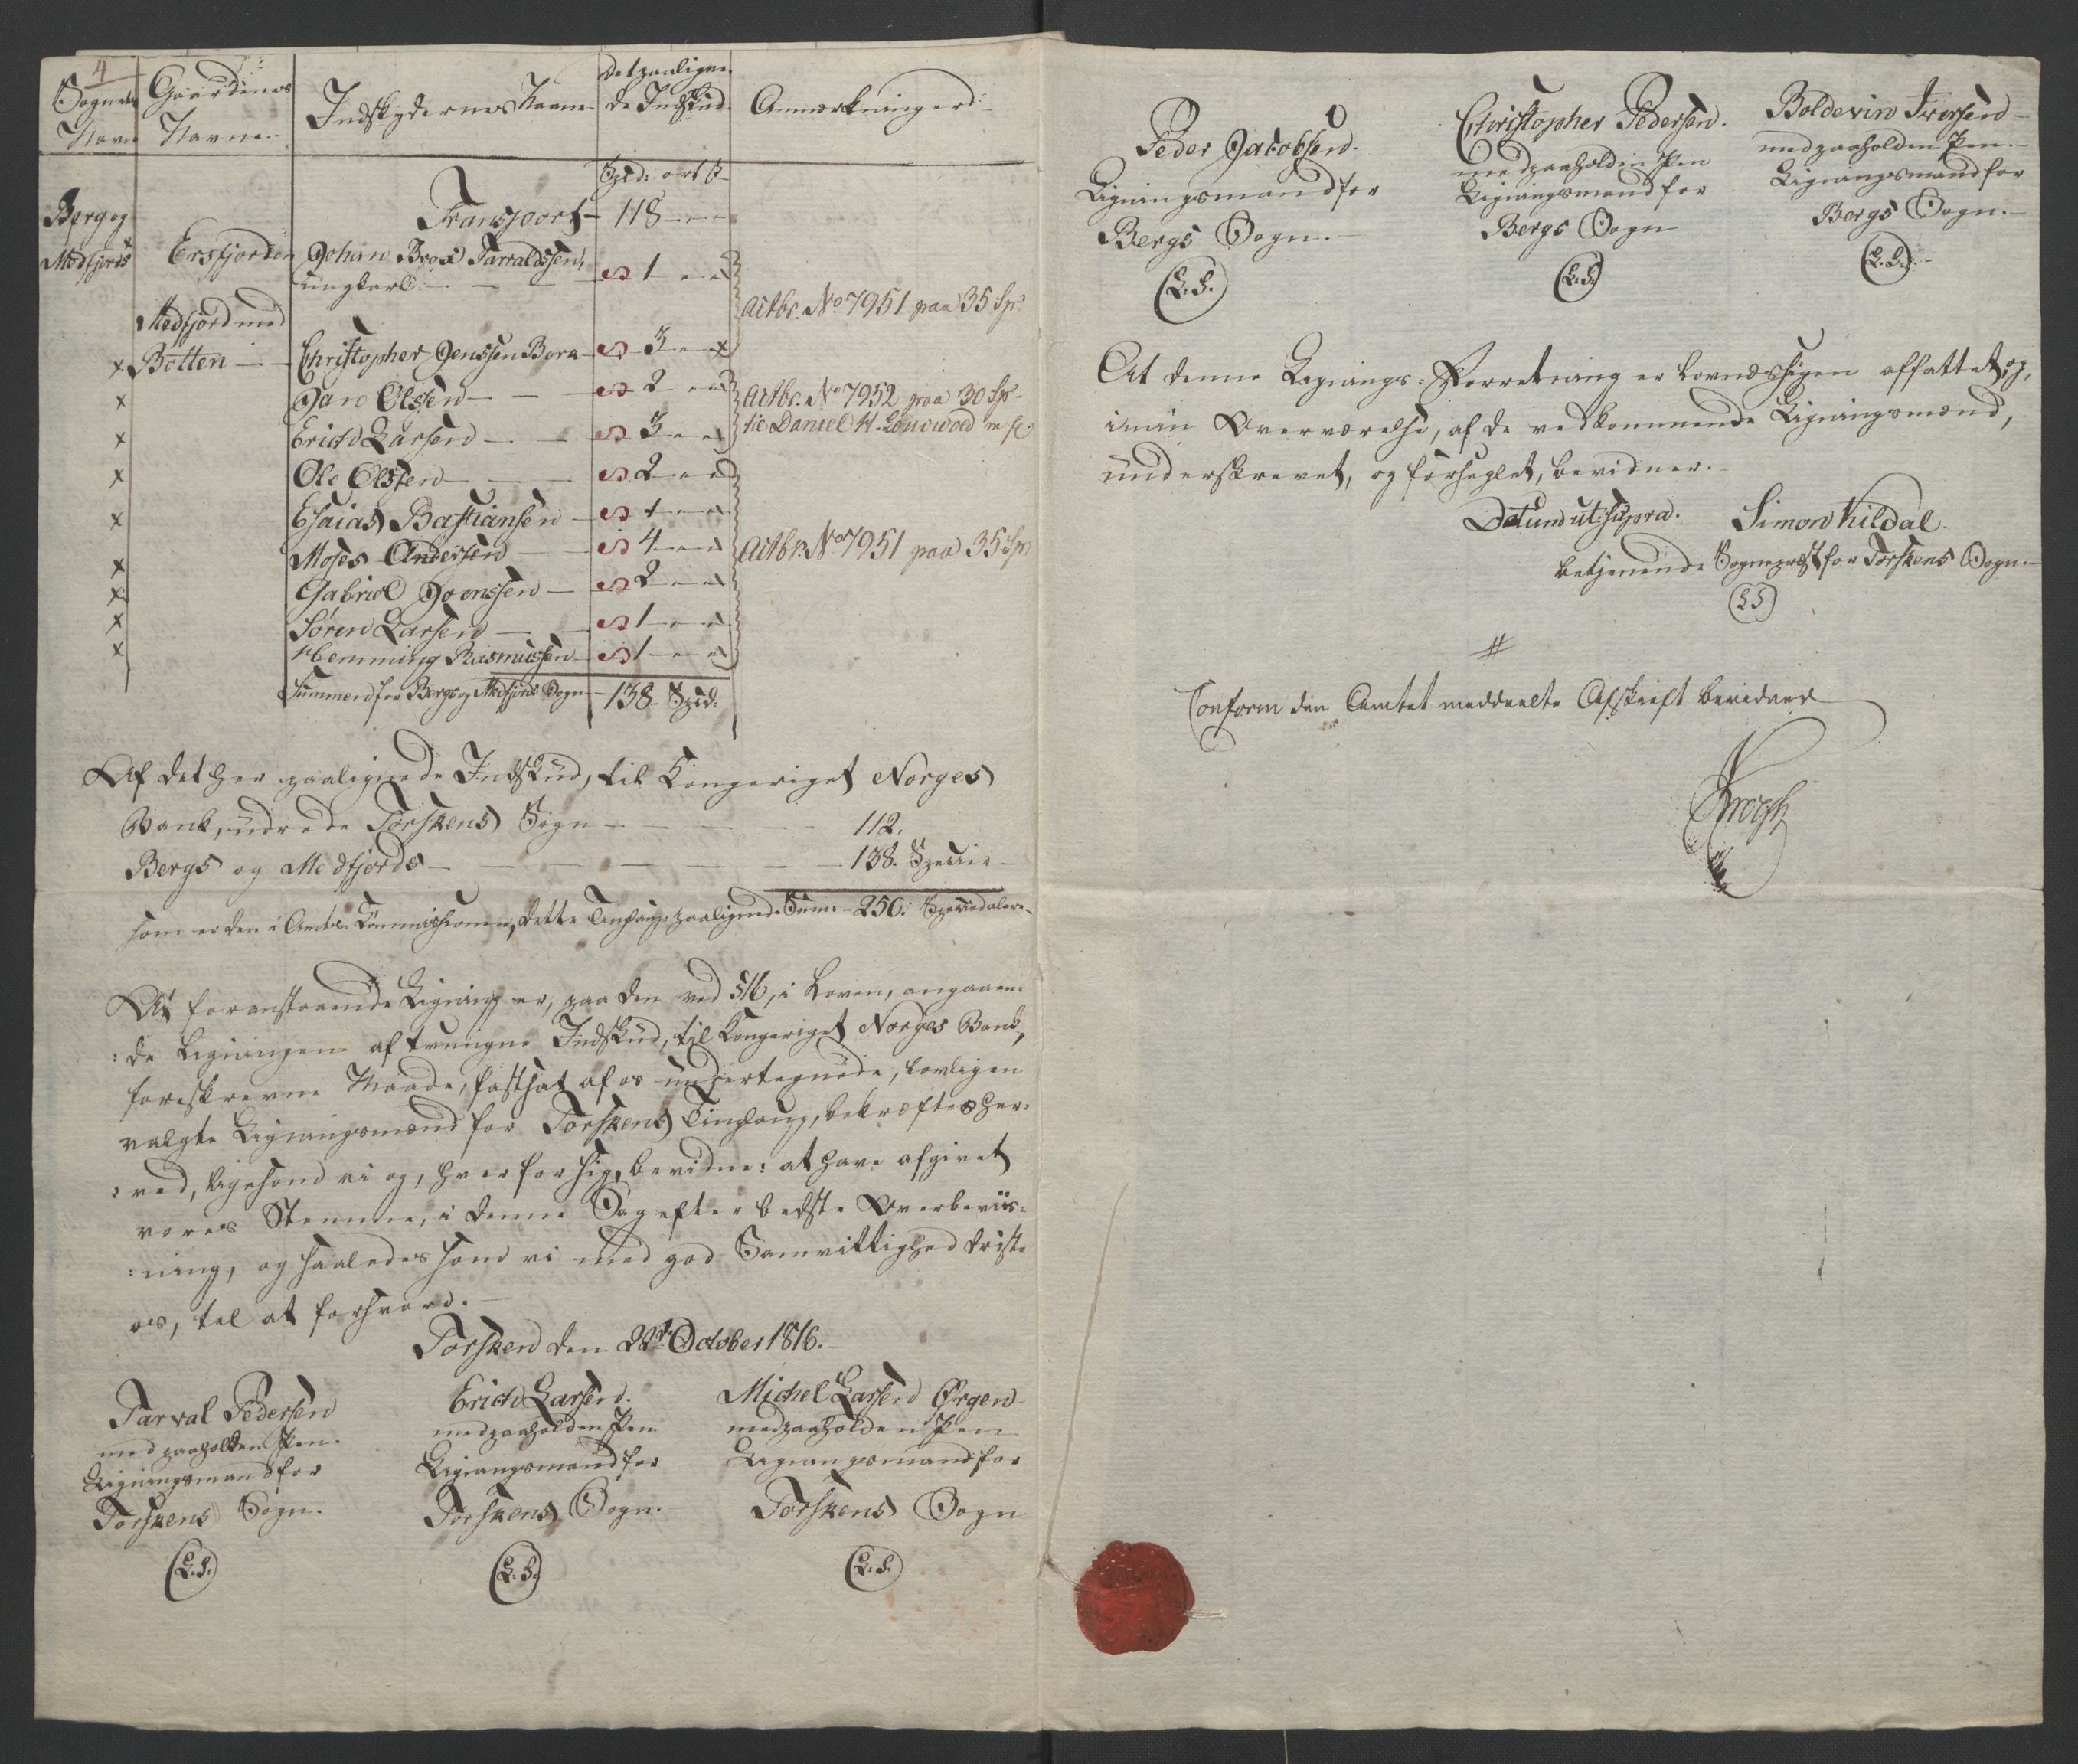 4
Sognets Navn
Gaardenes Navne
Indskydernes Navne
det paaligne- de Indskud
Anmærkninger
Spd: ort ß
Transport - 118 - - -
Berg og Medfjords
x Ersfjorden Johan Brox Tarraldssen, ungkarl - - 1 - -
Actbr. No 7951 paa 35 Sp.
Medfjord med
x Botten - - Christopher Jenssen Bora - 3 - -
x Jan Olssen - - 2 - - Actbr. No 7952 paa 30 Sp.
x Erich Larsen - - 3 - - til Daniel H.
x Ole Olssen - - 2 - -
x Esaias Bastiansen - 1 - -
x Moses Andersen - 4 - - Actbr. No 7951 paa 35 Sp
x Gabriel Joenssen - 2 - -
x Søren Larsen - - 1 - -
x Hemming Rasmussen - 1 - -
Summen for Bergs og Medfjords Sogn - 138 Spd:
Af det her paalignede Indskud, til Kongeriget Norges
Bank, udrede Torskens Sogn - - - 112.
Bergs og Medfjords - - - - 138. Specie -
som er den i Amts-Commissionen, dette Tinglaug paalignede Sum - 250: Speciedalere -
At foranstaaende Ligning er, paa den ved § 16, i Loven, angaaen-
:de Ligningen af tvungne Indskud, til Kongeriget Norges Bank,
foreskrevne Maade, fastsat af os undertegnede, lovligen
valgte Ligningsmænd for Torskens Tinglaug, bekræftes her-
:ved, ligesom vi og, hver for sig, bevidne: at have afgivet
vores Stemme, i denne Sag efter bedste Overbeviis-
:ning, og saaledes som vi med god Samvittighed trøste
os, til at forsvare. -
Torsken den 22de October 1816.
Tarval Pedersen
med paaholden Pen.
Ligningsmand for
Torskens Sogn.
(L.S.)
Erich Larsen.
med paaholden Pen
Ligningsmand for
Torskens Sogn.
(L.S.)
Michel Larsen Ørgen
med paaholden Pen
Ligningsmand for
Torskens Sogn
(L.S.)
Peder Jacobsen.
Ligningsmand for
Bergs Sogn. -
(L.S.)
Christopher Pedersen.
med paaholden Pen
Ligningsmand for
Bergs Sogn
(L.S.)
Boldevin Iversen -
med paaholden Pen. -
Ligningsmand for
Bergs Sogn. -
(L.S.)
At denne Lignings-Forretning er lovmæssigen affattet, og,
i min Overværelse, af de vedkommende Ligningsmænd,
underskrevet, og forseglet, bevidner. -
Datum ut supra. Simon Kildal.
betjenende Sognepræst for Torskens Sogn. -
(L.S.)
#
Conform den Amtet meddeelte Afskrift bevidner
Krogh